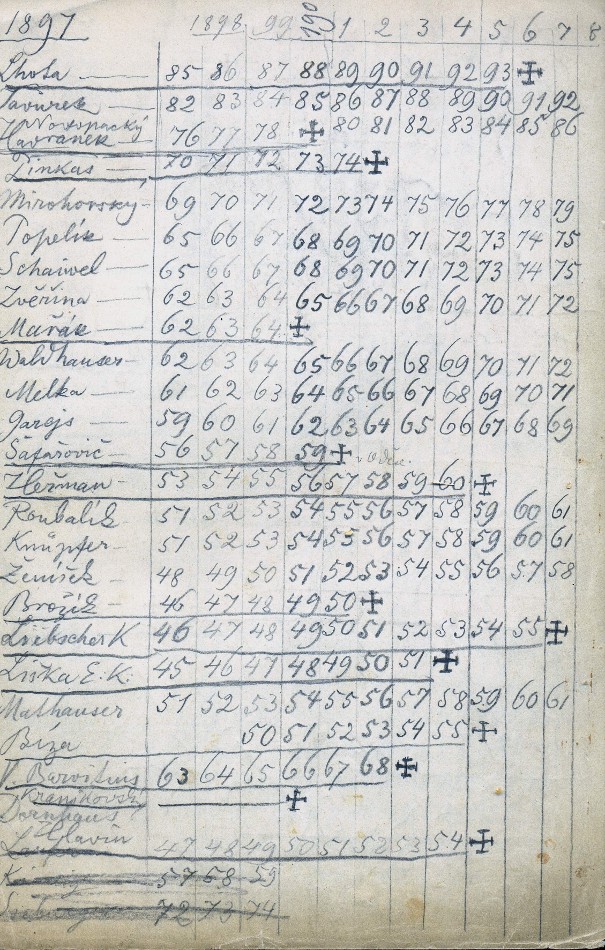 1897 1898 99 190 1 2 3 4 5 6 7 8
Lhota 85 86 87 88 89 90 91 92 93 ✠
Tavírek 82 83 84 85 86 87 88 89 90 91 92
Novopacký
Havránek 76 77 78 ✠ 80 81 82 83 84 85 86
70 71 72 73 74 ✠
Mirohorský 69 70 71 72 73 74 75 76 77 78 79
Topelík 65 66 67 68 69 70 71 72 73 74 75
Schaiwel 65 66 67 68 69 70 71 72 73 74 75
Zvěřina 62 63 64 65 66 67 68 69 70 71 72
Mařák 62 63 64 ✠
Waldhauser 62 63 64 65 66 67 68 69 70 71 72
Melka 61 62 63 64 65 66 67 68 69 70 71
Gareis 59 60 61 62 63 64 65 66 67 68 69
Šafařovič 56 57 58 59 ✠
Heřman 53 54 55 56 57 58 59 60 ✠
Roubalík 51 52 53 54 55 56 57 58 59 60 61
Knüpfer 51 52 53 54 55 56 57 58 59 60 61
Ženíšek 48 49 50 51 52 53 54 55 56 57 58
Brožík 46 47 48 49 50 ✠
Liebscher K 46 47 48 49 50 51 52 53 54 55 ✠
Liška E. K. 45 46 47 48 49 50 51 ✠
Mathauser 51 52 53 54 55 56 57 58 59 60 61
Bíza 50 51 52 53 54 55 ✠
Barvitius 63 64 65 66 67 68 ✠
✠
Dornhaus
Hlavín
47 48 49 50 51 52 53 54 ✠
57 58 59
72 73 74